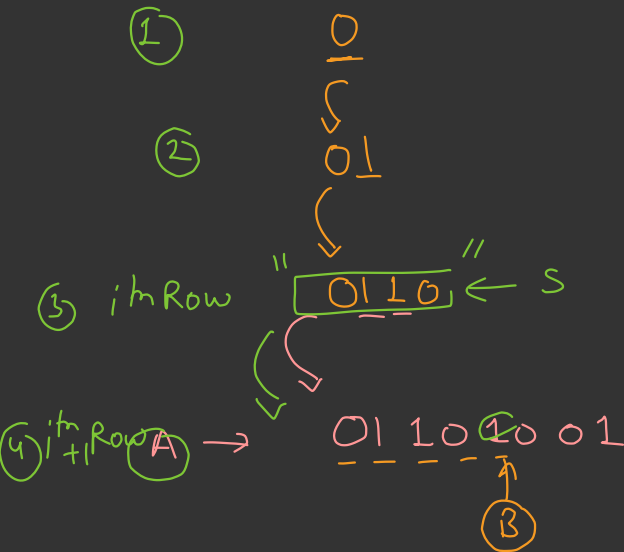 1 0
2 01
3 ith Row " 0110 " ← S
4 ith+1 Row A → 01101001
B